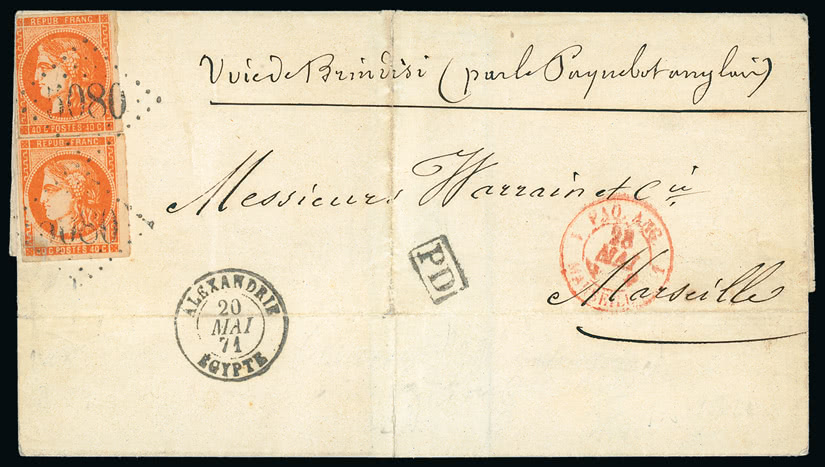 REPUB. FRANC.
5080
40 C. POSTES 40 C.
REPUB. FRANC.
5080
40 C. POSTES 40 C.
Voie de Brindisi (par le Paquebot anglais)
Messieurs Warrain et Cie
Marseille
PD
ALEXANDRIE
20
MAI
71
EGYPTE
1 PAQ. ANG. 1
28
MAI
MARSEILLE